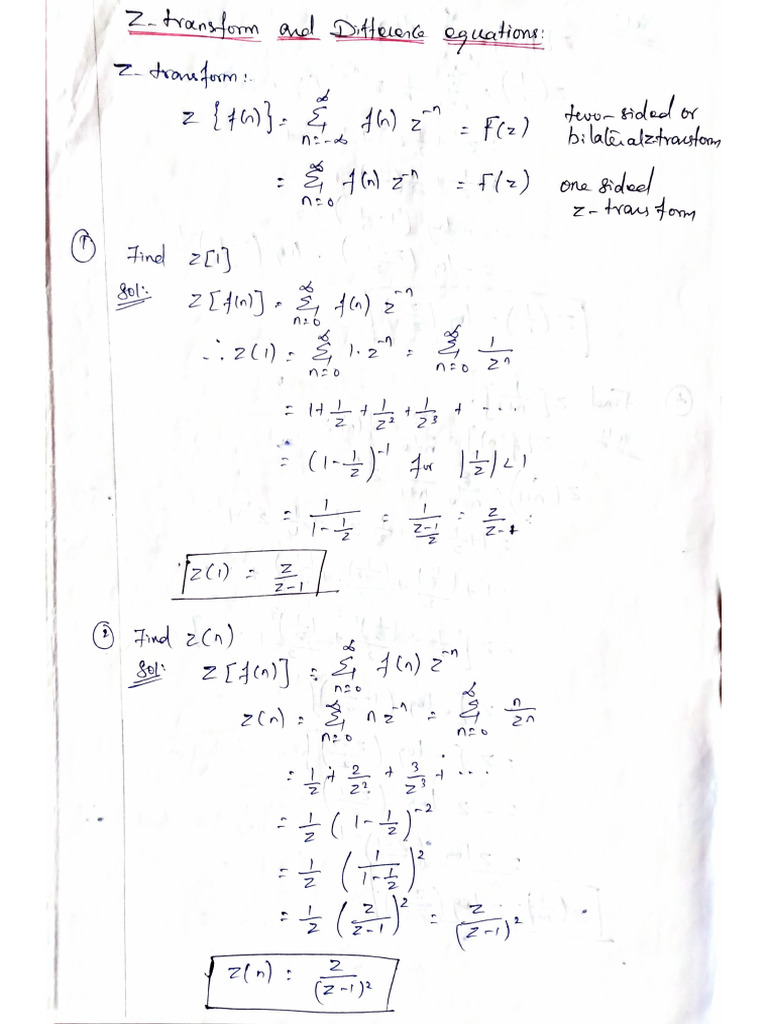 Z-transform and Difference equations:
Z-transform:-
Z {f(n)} = ∞Σn=-∞ f(n) z^-n = F(z) two-sided or bilateral z transform
= ∞Σn=0 f(n) z^-n = F(z) one sided z-transform
① Find z[1]
Sol: Z[f(n)] = ∞Σn=0 f(n) z^-n
∴ Z(1) = ∞Σn=0 1. z^-n = ∞Σn=0 1/z^n
= 1 + 1/z + 1/z^2 + 1/z^3 + - - -
= (1 - 1/z)^-1 for |1/z| < 1
= 1/(1 - 1/z) = 1/((z-1)/z) = z/(z-1)
Z(1) = z/(z-1)
② Find z(n)
Sol: Z[f(n)] = ∞Σn=0 f(n) z^-n
Z(n) = ∞Σn=0 n z^-n = ∞Σn=0 n/z^n
= 1/z + 2/z^2 + 3/z^3 + ...
= 1/z (1 - 1/z)^-2
= 1/z (1/(1 - 1/z))^2
= 1/z (z/(z-1))^2 = z/(z-1)^2
Z(n) = z/(z-1)^2